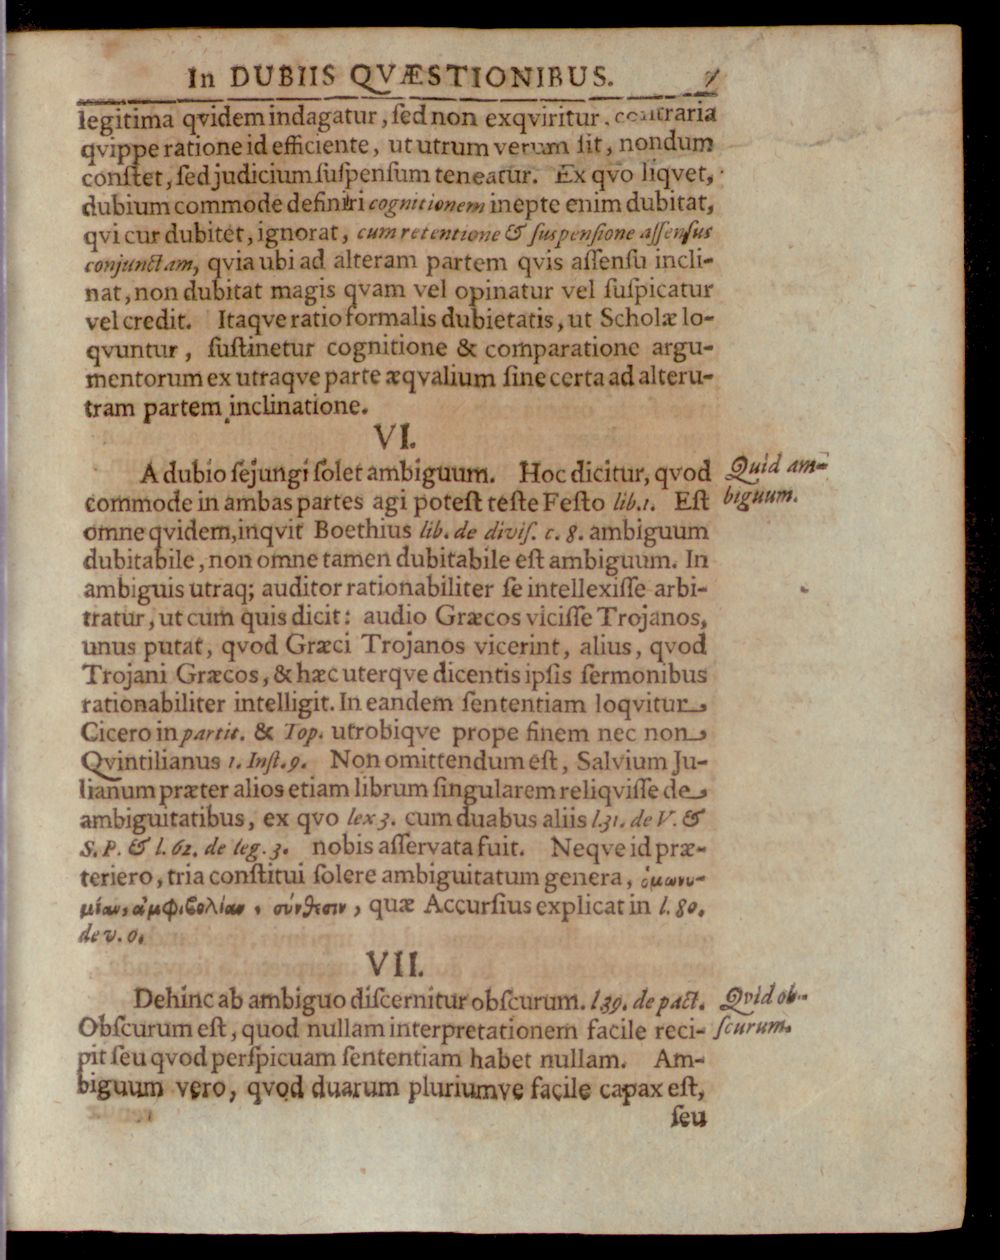 In DUBIIS QVÆSTIONIBUS. 7
legitima qvidem indagatur, ſed non exqviritur, contraria
qvippe ratione id efficiente, ut utrum verum ſit, nondum
conſtet, ſed judicium ſuſpenſum teneatur. Ex qvo liqvet,
dubium commode definiri cognitionem inepte enim dubitat,
qvi cur dubitet, ignorat, cum retentione & ſuſpenſione aſſenſus
conjunctam, qvia ubi ad alteram partem qvis aſſenſu incli-
nat, non dubitat magis qvam vel opinatur vel ſuſpicatur
vel credit. Itaqve ratio formalis dubietatis, ut Scholæ lo-
qvuntur, ſuſtinetur cognitione & comparatione argu-
mentorum ex utraqve parte æqvalium ſine certa ad alteru-
tram partem inclinatione.
VI.
A dubio ſejungi ſolet ambiguum. Hoc dicitur, qvod
Quid am-
commode in ambas partes agi poteſt teſte Feſto lib. 1. Eſt
biguum.
omne qvidem, inqvit Boethius lib. de diviſ. c. 8. ambiguum
dubitabile, non omne tamen dubitabile eſt ambiguum. In
ambiguis utraq; auditor rationabiliter ſe intellexiſſe arbi-
tratur, ut cum quis dicit: audio Græcos viciſſe Trojanos,
unus putat, qvod Græci Trojanos vicerint, alius, qvod
Trojani Græcos, & hæc uterqve dicentis ipſis ſermonibus
rationabiliter intelligit. In eandem ſententiam loqvitur
Cicero in partit. & Top. utrobiqve prope finem nec non
Qvintilianus 1. Inſt. 9. Non omittendum eſt, Salvium Ju-
lianum præter alios etiam librum ſingularem reliqviſſe de
ambiguitatibus, ex qvo lex 3. cum duabus aliis l. 31. de V. &
S. P. & l. 62. de leg. 3. nobis aſſervata fuit. Neqve id præ-
teriero, tria conſtitui ſolere ambiguitatum genera, ὁμωνυ-
μίαν, ἀμφιβολίαν, σύνθεσιν, quæ Accurſius explicat in l. 80.
de v. o.
VII.
Dehinc ab ambiguo diſcernitur obſcurum. l. 39. de pact.
Qvid ob-
Obſcurum eſt, quod nullam interpretationem facile reci-
ſcurum.
pit ſeu qvod perſpicuam ſententiam habet nullam. Am-
biguum vero, qvod duarum pluriumve facile capax eſt,
ſeu